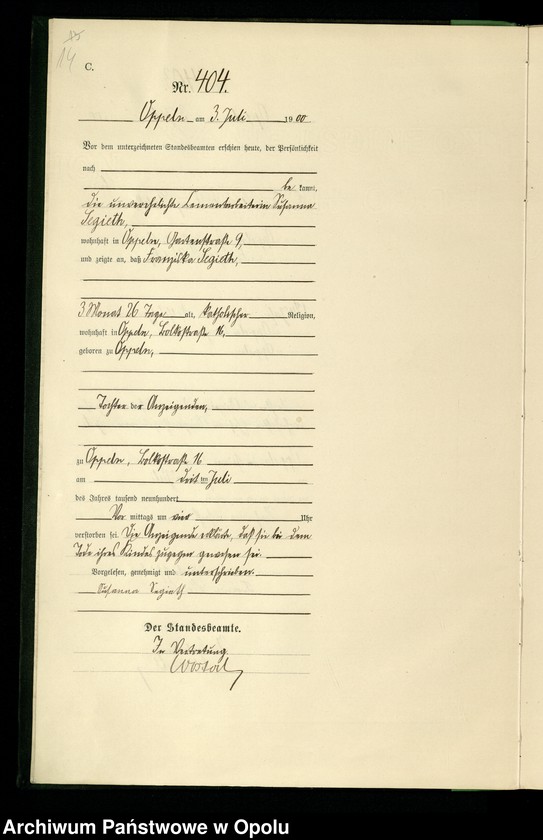 14
C.
Nr. 404.
Oppeln am 3. Juli 1900
Vor dem unterzeichneten Standesbeamten erschien heute, der Persönlichkeit
nach
be kannt,
die unverehelichte Cementarbeiterin Susanna
Segieth,
wohnhaft in Oppeln, Gartenstraße 9,
und zeigte an, daß Franziska Segieth,
3 Monat 26 Tage alt, katholischer Religion,
wohnhaft in Oppeln, Bolkostraße 16,
geboren zu Oppeln,
Tochter der Anzeigenden,
zu Oppeln, Bolkostraße 16
am drit ten Juli
des Jahres tausend neunhundert
Vor mittags um vier Uhr
verstorben sei. Die Anzeigende erklärte, daß sie bei dem
Tode ihres Kindes zugegen gewesen sei.
Vorgelesen, genehmigt und unterschrieben.
Susanna Segieth
Der Standesbeamte.
In Vertretung
Archiwum Państwowe w Opolu